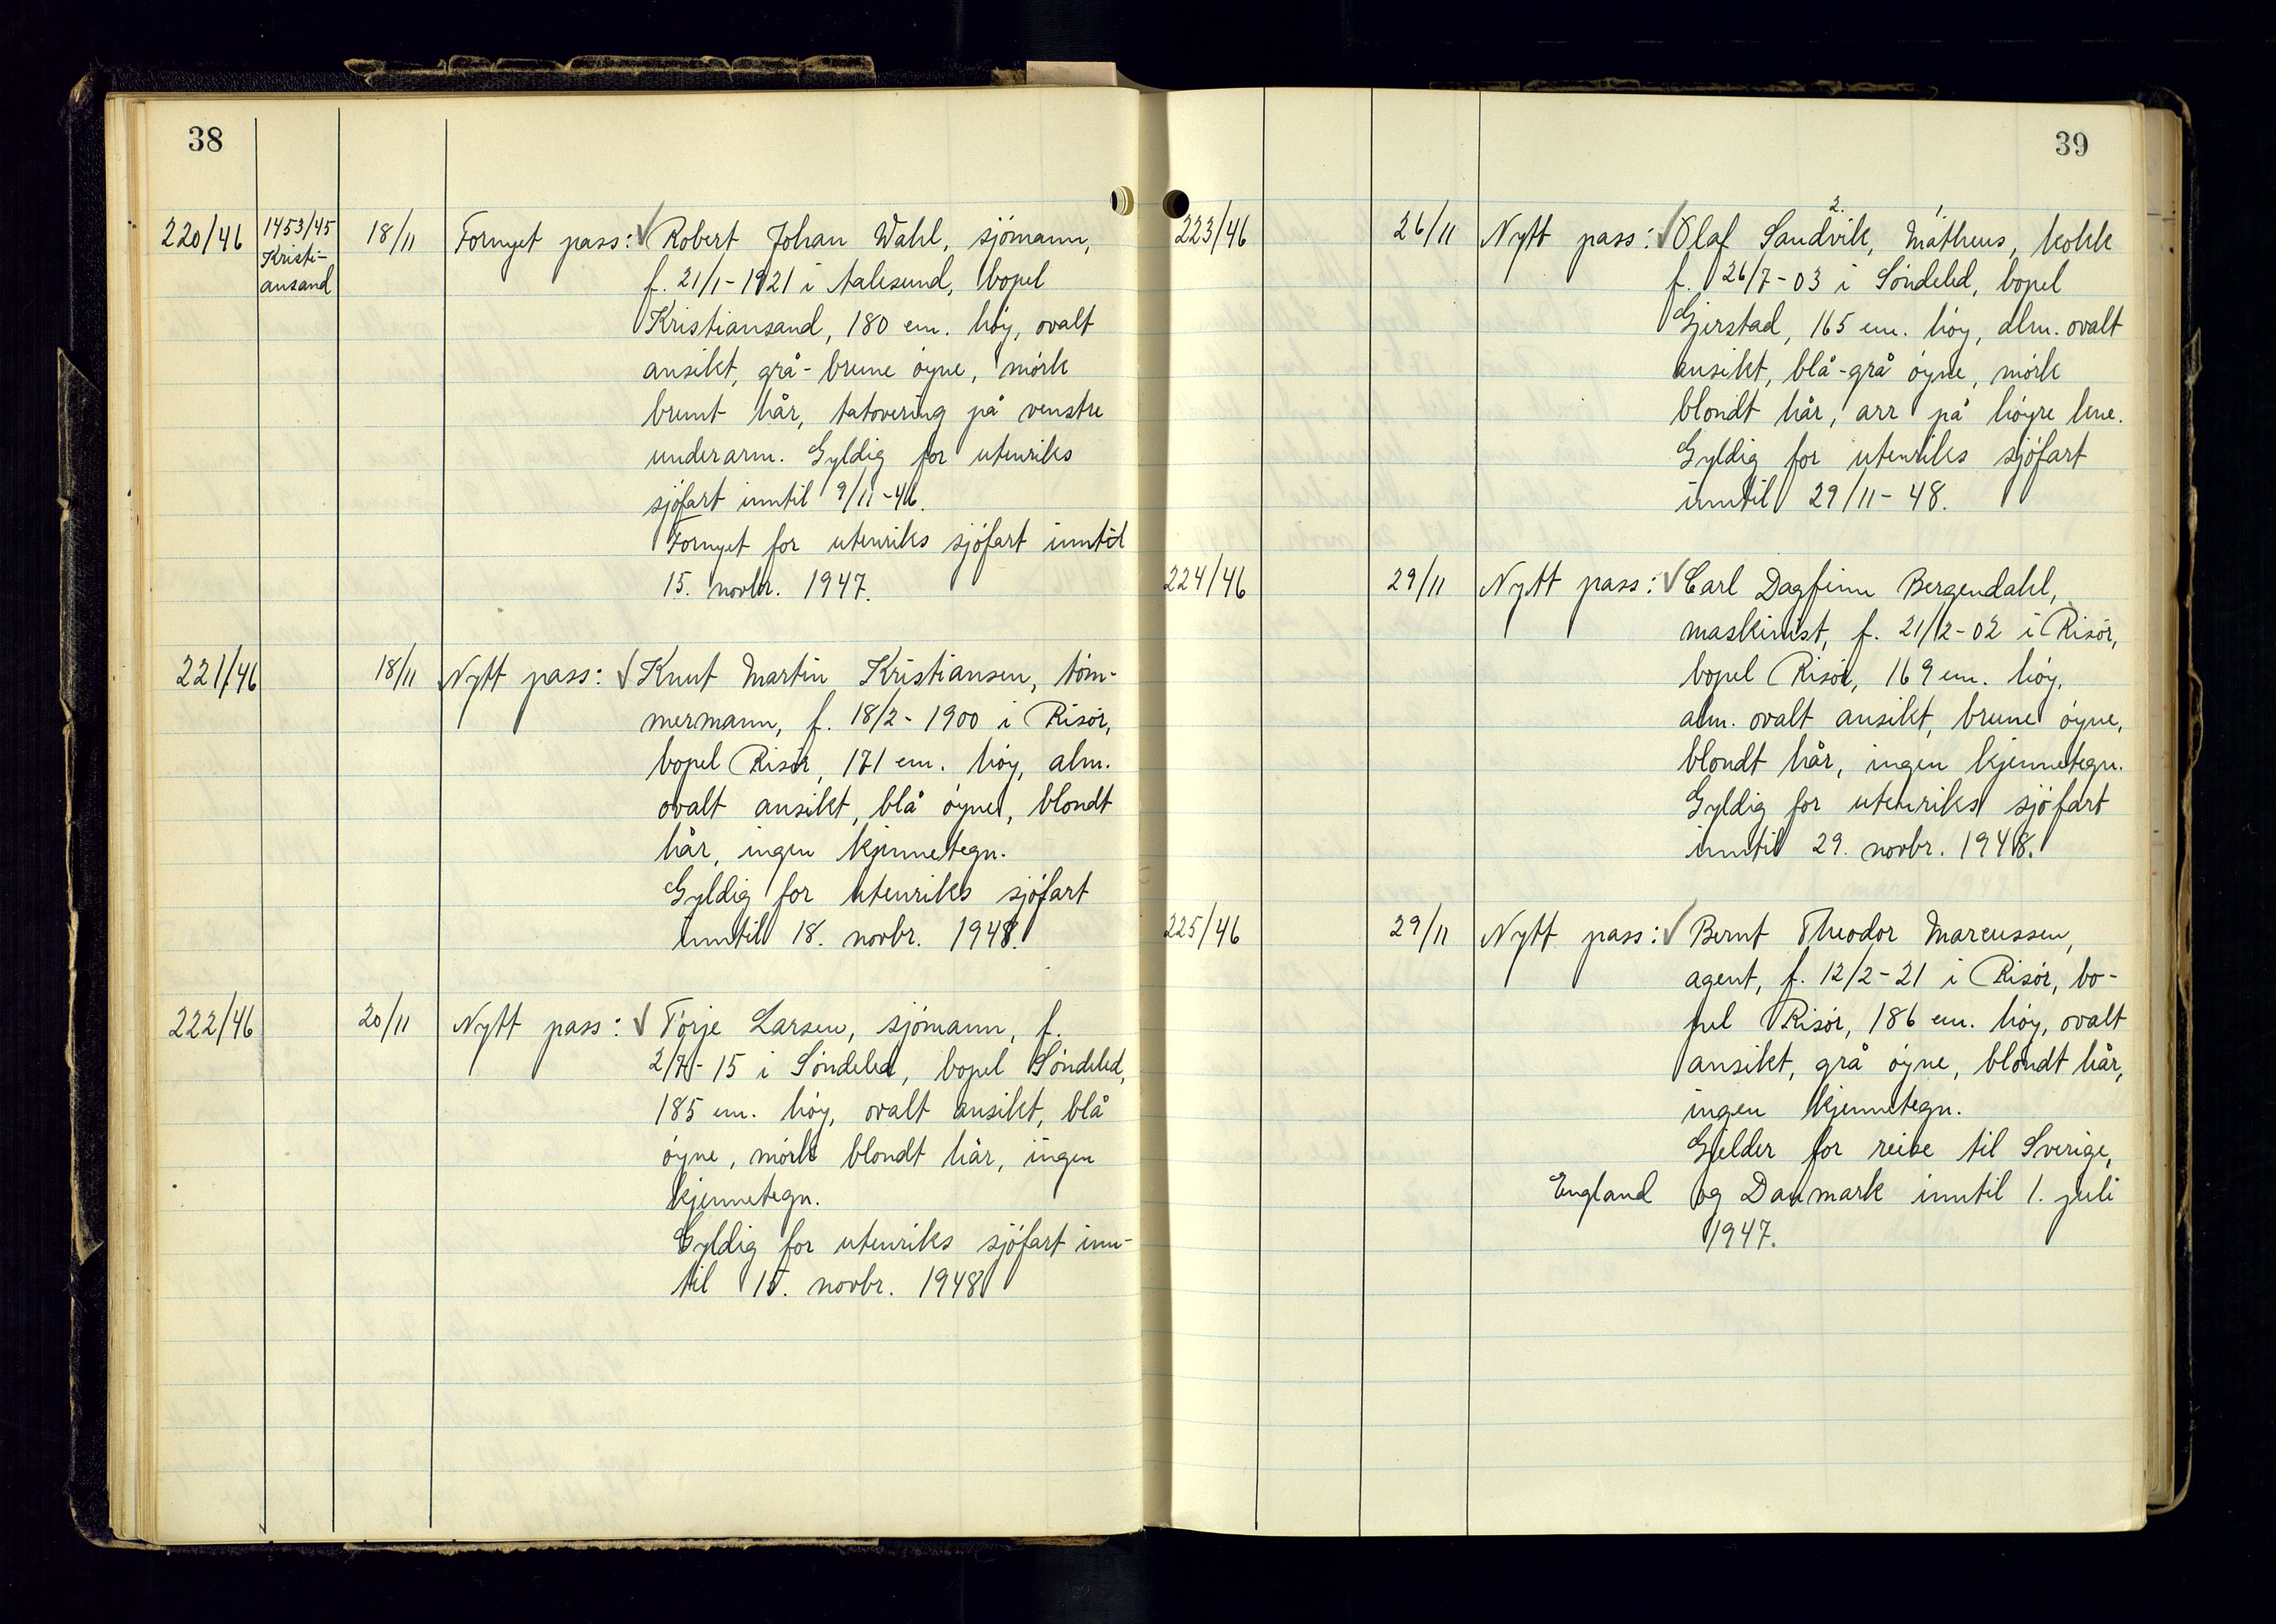 38
220/46 1453/45 Kristi-ansand 18/11 Fornyet pass: √ Robert Johan Wahl, sjömann,
f. 21/1-1921 i Aalesund, bopel
Kristiansand, 180 cm. höy, ovalt
ansikt, grå-brune öyne, mörk
brunt hår, tatovering på venstre
underarm. Gyldig for utenriks
sjöfart inntil 9/11-46.
Fornyet for utenriks sjöfart inntil
15. novbr. 1947.
221/46 18/11 Nytt pass: √ Knut Martin Kristiansen, töm-
mermann, f. 18/2-1900 i Risör,
bopel Risör, 171 cm. höy, alm.
ovalt ansikt, blå öyne, blondt
hår, ingen kjennetegn.
Gyldig for utenriks sjöfart
inntil 18. novbr. 1948.
222/46 20/11 Nytt pass: √ Törje Larsen, sjömann, f.
2/7-15 i Söndeled, bopel Söndeled,
185 cm. höy, ovalt ansikt, blå
öyne, mörk blondt hår, ingen
kjennetegn.
Gyldig for utenriks sjöfart inn-
til 15. novbr. 1948
39
2. 1.
223/46 26/11 Nytt pass: √ Olaf Sandvik, Matheus, kokk
f. 26/7-03 i Söndeled, bopel
Gjerstad, 165 cm. höy, alm. ovalt
ansikt, blå-grå öyne, mörk
blondt hår, arr på höyre kne.
Gyldig for utenriks sjöfart
inntil 29/11-48.
224/46 29/11 Nytt pass: √ Carl Dagfinn Bergendahl,
maskinist, f. 21/2-02 i Risör,
bopel Risör, 169 cm. höy,
alm. ovalt ansikt, brune öyne,
blondt hår, ingen kjennetegn.
Gyldig for utenriks sjöfart
inntil 29. novbr. 1948.
225/46 29/11 Nytt pass: √ Bernt Theodor Marcussen,
agent, f. 12/2-21 i Risör, bo-
pel Risör, 186 cm. höy, ovalt
ansikt, grå öyne, blondt hår,
ingen kjennetegn.
Gjelder for reise til Sverige,
England og Danmark inntil 1. juli
1947.